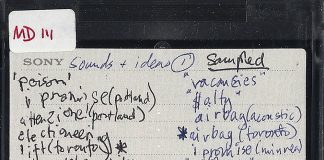 MD 111
SONY
sounds + ideas ①
Sampled
"poison"
"vacancies"
I promise (portland)
"falty"
attenzione (portland)
airbag (acoustic)
electioneering
* airbag (toronto)
lift (toronto) *
I promise (minnea